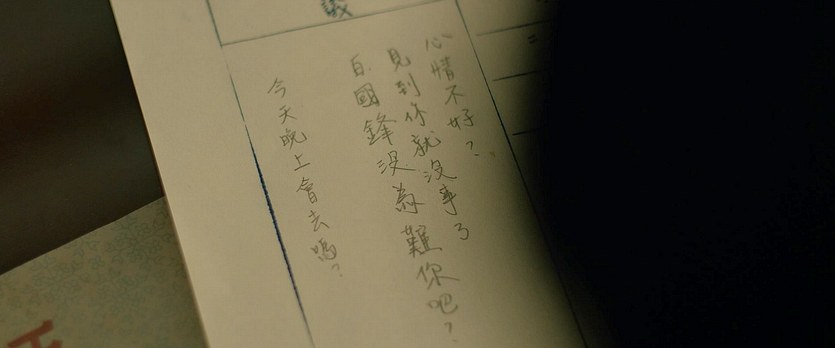 心情不好？
見到你就沒事了
白國鋒沒為難你吧？
今天晚上會去嗎？